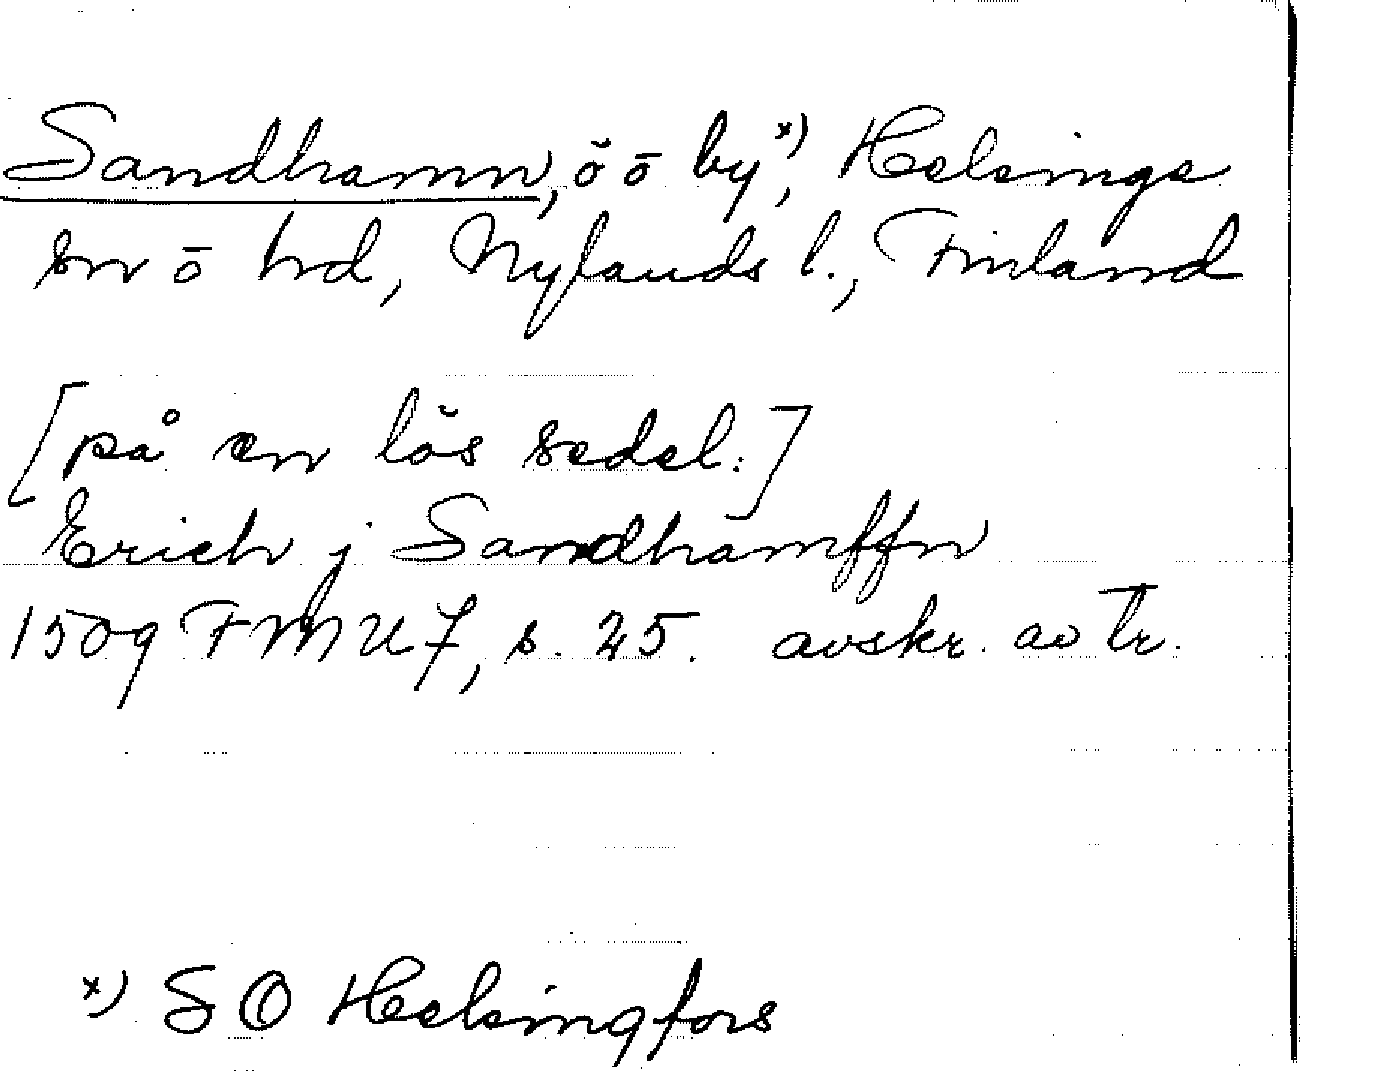 Sandhamn, ö ō by x), Helsinge
sn ō hd, Nylands l., Finland
[på en lös sedel:]
Erich j Sandhamffn
1509 FMU 7, s. 25. avskr. av tr.
x) SO Helsingfors